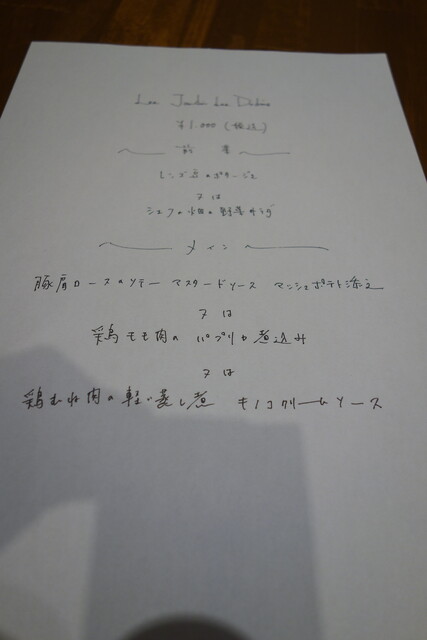 ¥1.000 (税込)
前菜
レンズ豆のポタージュ
又は
シェフの畑の野菜サラダ
メイン
豚肩ロースのソテー マスタードソース マッシュポテト添え
又は
鶏モモ肉の パプリカ煮込み
又は
鶏むね肉の軽い蒸し煮 キノコクリームソース